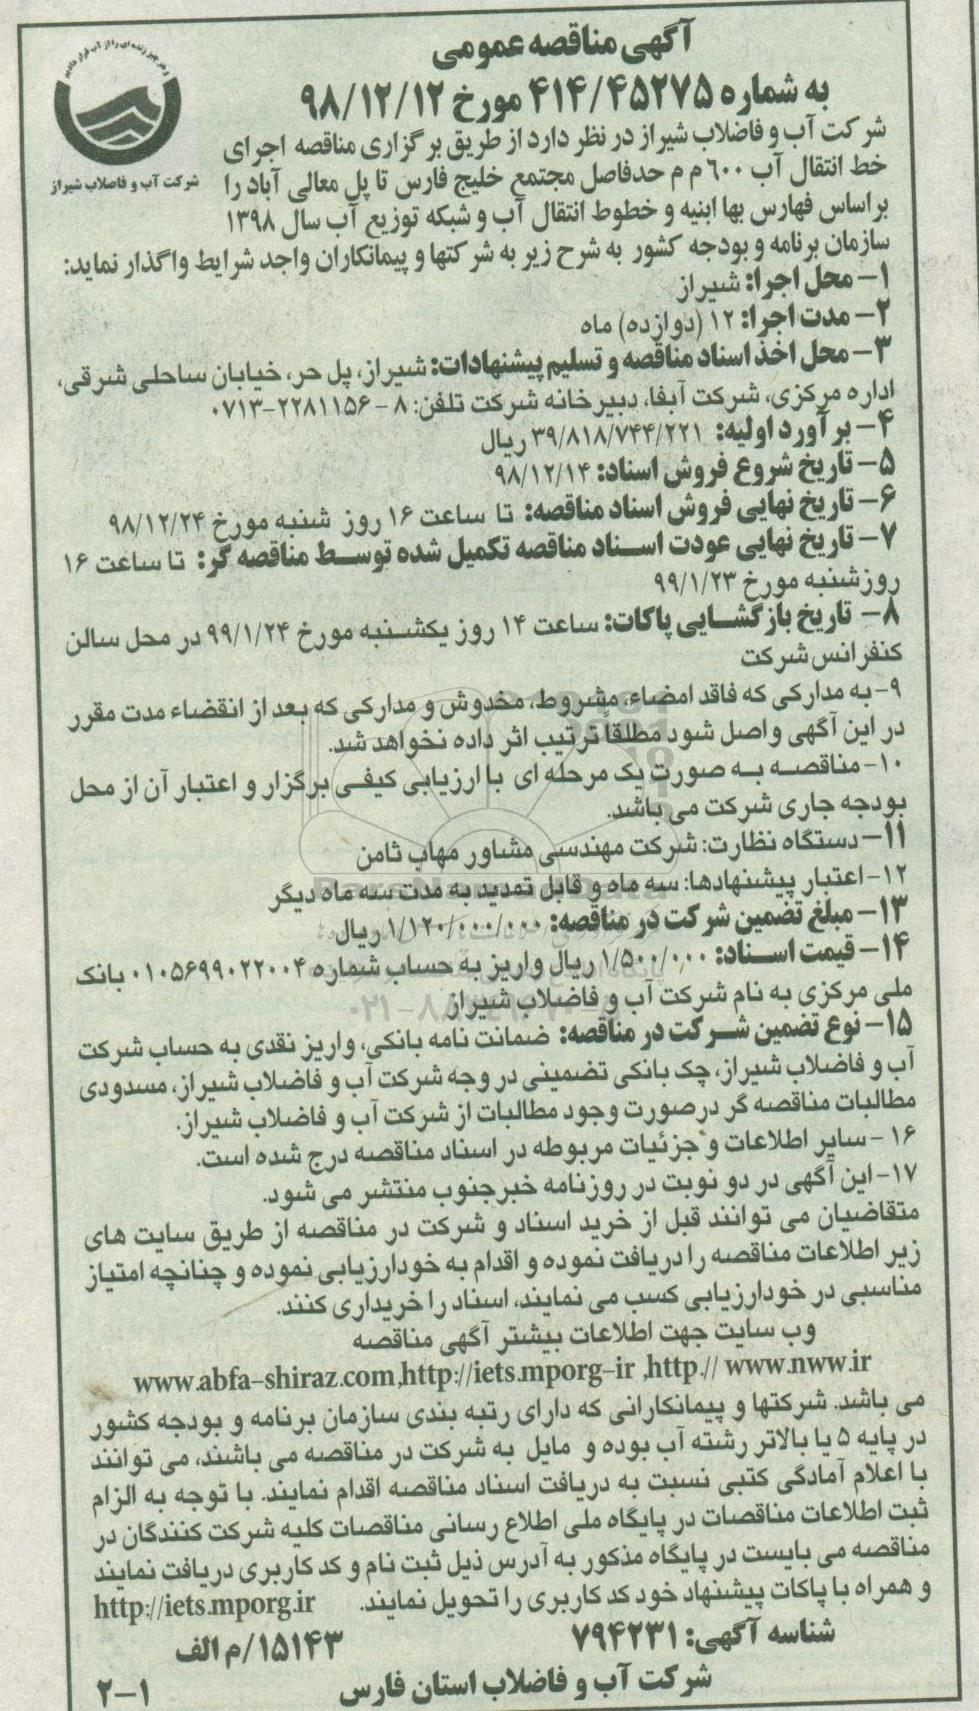 آگهی مناقصه عمومی
به شماره ۴۱۴/۴۵۲۷۵ مورخ ۹۸/۱۲/۱۲
شرکت آب و فاضلاب شیراز
شرکت آب و فاضلاب شیراز در نظر دارد از طریق برگزاری مناقصه اجرای
خط انتقال آب ۶۰۰ م م حدفاصل مجتمع خلیج فارس تا پل معالی آباد را
براساس فهارس بها ابنیه و خطوط انتقال آب و شبکه توزیع آب سال ۱۳۹۸
سازمان برنامه و بودجه کشور به شرح زیر به شرکتها و پیمانکاران واجد شرایط واگذار نماید:
۱- محل اجرا: شیراز
۲- مدت اجرا: ۱۲ (دوازده) ماه
۳- محل اخذ اسناد مناقصه و تسلیم پیشنهادات: شیراز، پل حر، خیابان ساحلی شرقی،
اداره مرکزی، شرکت آبفا، دبیرخانه شرکت تلفن: ۸ - ۲۲۸۱۱۵۶-۰۷۱۳
۴- برآورد اولیه: ۳۹/۸۱۸/۷۴۴/۲۲۱ ریال
۵- تاریخ شروع فروش اسناد: ۹۸/۱۲/۱۴
۶- تاریخ نهایی فروش اسناد مناقصه: تا ساعت ۱۶ روز شنبه مورخ ۹۸/۱۲/۲۴
۷- تاریخ نهایی عودت اسناد مناقصه تکمیل شده توسط مناقصه گر: تا ساعت ۱۶
روز شنبه مورخ ۹۹/۱/۲۳
۸- تاریخ بازگشایی پاکات: ساعت ۱۴ روز یکشنبه مورخ ۹۹/۱/۲۴ در محل سالن
کنفرانس شرکت
۹- به مدارکی که فاقد امضاء، مشروط، مخدوش و مدارکی که بعد از انقضاء مدت مقرر
در این آگهی واصل شود مطلقاً ترتیب اثر داده نخواهد شد.
۱۰- مناقصه به صورت یک مرحله ای با ارزیابی کیفی برگزار و اعتبار آن از محل
بودجه جاری شرکت می باشد.
۱۱- دستگاه نظارت: شرکت مهندسی مشاور مهاب ثامن
۱۲- اعتبار پیشنهادها: سه ماه و قابل تمدید به مدت سه ماه دیگر
۱۳- مبلغ تضمین شرکت در مناقصه: ۱/۱۲۰/۰۰۰/۰۰۰ ریال
۱۴- قیمت اسناد: ۱/۵۰۰/۰۰۰ ریال واریز به حساب شماره ۰۱۰۵۶۹۹۰۲۲۰۰۴ بانک
ملی مرکزی به نام شرکت آب و فاضلاب شیراز
۱۵- نوع تضمین شرکت در مناقصه: ضمانت نامه بانکی، واریز نقدی به حساب شرکت
آب و فاضلاب شیراز، چک بانکی تضمینی در وجه شرکت آب و فاضلاب شیراز، مسدودی
مطالبات مناقصه گر درصورت وجود مطالبات از شرکت آب و فاضلاب شیراز.
۱۶ - سایر اطلاعات و جزئیات مربوطه در اسناد مناقصه درج شده است.
۱۷- این آگهی در دو نوبت در روزنامه خبرجنوب منتشر می شود.
متقاضیان می توانند قبل از خرید اسناد و شرکت در مناقصه از طریق سایت های
زیر اطلاعات مناقصه را دریافت نموده و اقدام به خودارزیابی نموده و چنانچه امتیاز
مناسبی در خودارزیابی کسب می نمایند، اسناد را خریداری کنند.
وب سایت جهت اطلاعات بیشتر آگهی مناقصه
www.abfa-shiraz.com,http://iets.mporg-ir ,http.// www.nww.ir
می باشد. شرکتها و پیمانکارانی که دارای رتبه بندی سازمان برنامه و بودجه کشور
در پایه ۵ یا بالاتر رشته آب بوده و مایل به شرکت در مناقصه می باشند، می توانند
با اعلام آمادگی کتبی نسبت به دریافت اسناد مناقصه اقدام نمایند. با توجه به الزام
ثبت اطلاعات مناقصات در پایگاه ملی اطلاع رسانی مناقصات کلیه شرکت کنندگان در
مناقصه می بایست در پایگاه مذکور به آدرس ذیل ثبت نام و کد کاربری دریافت نمایند
و همراه با پاکات پیشنهاد خود کد کاربری را تحویل نمایند. http://iets.mporg.ir
شناسه آگهی: ۷۹۴۲۳۱ ۱۵۱۴۳/م الف
شرکت آب و فاضلاب استان فارس
۲-۱